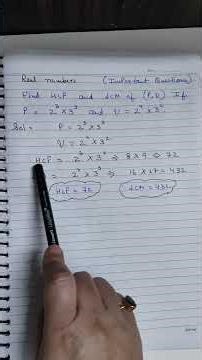 Real numbers (Important Questions)
Find HCF and LCM of (P,Q) If
P = 2³×3³ and
Sol: P = 2³×3³
HCF = 2³×3² ⇒ 8×9 ⇒ 72
= ⇒ 16×27 = 432
HCF = 72 LCM = 432